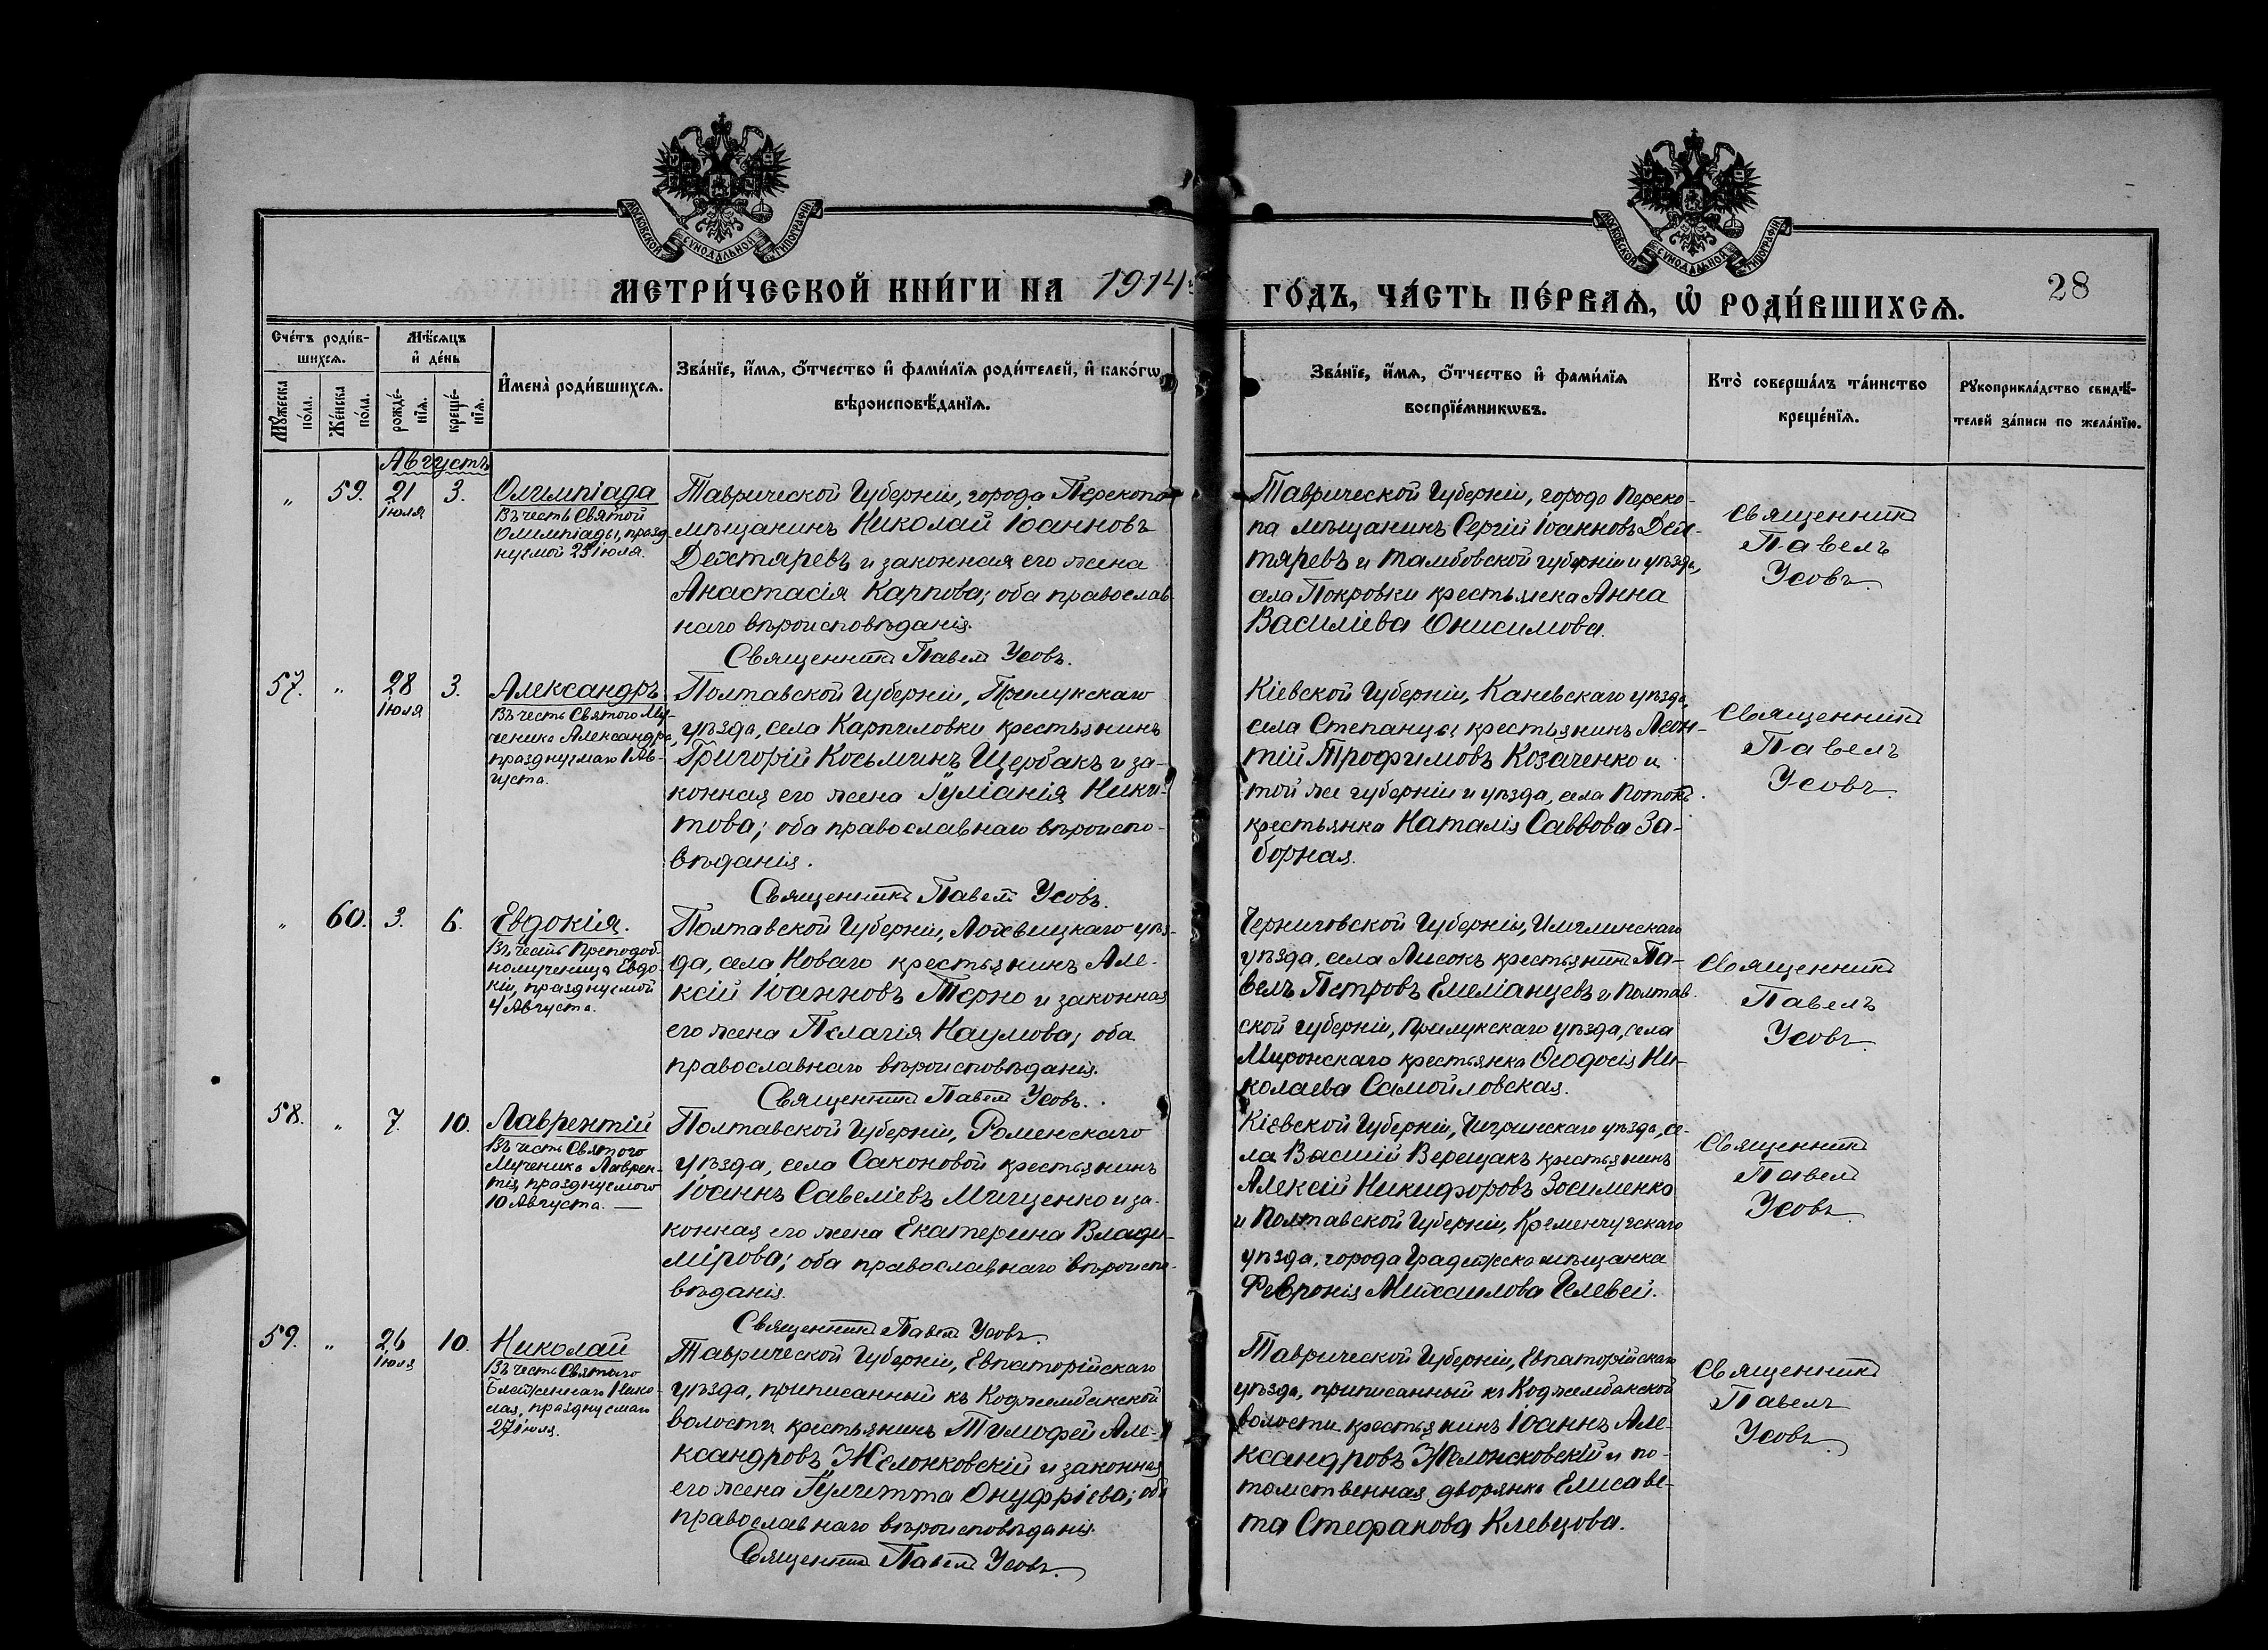 МОСКОВСКОЙ СѴНОДАЛЬНОЙ ТИПОГРАФІИ
МОСКОВСКОЙ СѴНОДАЛЬНОЙ ТИПОГРАФІИ
МЕТРИ́ЧЕСКОЙ КНИ́ГИ НА 1914
ГО́ДЪ, ЧА́СТЬ ПЕ́РВАѦ, Ѡ҆ РОДИ́ВШИХСѦ.
28
Сче́тъ роди́в-
шихсѧ.
Мꙋ́жеска
по́ла.
Же́нска
по́ла.
Мѣ́сѧцъ
и҆ де́нь
рожде́-
нїѧ.
креще́-
нїѧ.
И҆мена̀ роди́вшихсѧ.
Зва́нїе, и҆́мѧ, ѻ҆́тчество и҆ фами́лїѧ роди́телей, и҆ како́гѡ
вѣроисповѣ́данїѧ.
Зва́нїе, и҆́мѧ, ѻ҆́тчество и҆ фами́лїѧ
воспрїе́мникѡвъ.
Кто̀ соверша́лъ та́инство
креще́нїѧ.
Рꙋкоприкла́дство свидѣ́-
телей за́писи по жела́нїю.
Августъ
„ 59. 21 3.
Іюля
Олимпіада
Въ честь Святой
Олимпіады, празд-
нуемой 25 іюля.
Таврической Губерніи, города Перекопа
мѣщанинъ Николай Іоанновъ
Дехтяревъ и законная его жена
Анастасія Карпова; оба православ-
наго вѣроисповѣданія.
Священникъ Павелъ Усовъ.
Таврической Губерніи, города Переко-
па мѣщанинъ Сергій Іоанновъ Дех-
тяревъ и Тамбовской губерніи и уѣзда,
села Покровки крестьянка Анна
Василіева Онисимова.
Священникъ
Павелъ
Усовъ
57. „ 28 3.
Іюля
Александръ
Въ честь Святого Му-
ченика Александра,
празднуемаго 1 Ав-
густа.
Полтавской Губерніи, Прилукскаго
уѣзда, села Карпиловки крестьянинъ
Григорій Косьминъ Щербакъ и за-
конная его жена Іуліанія Ники-
това; оба православнаго вѣроиспо-
вѣданія.
Священникъ Павелъ Усовъ.
Кіевской Губерніи, Каневскаго уѣзда,
села Степанцы крестьянинъ Леон-
тій Трофимовъ Козаченко и
той же губерніи и уѣзда, села Потокъ
крестьянка Наталія Саввова За-
борная.
Священникъ
Павелъ
Усовъ.
„ 60. 3. 6.
Евдокія.
Въ честь Преподоб-
номученицы Евдо-
кіи, празднуемой
4 Августа.
Полтавской Губерніи, Лохвицкаго уѣз-
да, села Новаго крестьянинъ Але-
ксій Іоанновъ Терно и законная
его жена Пелагія Наумова; оба
православнаго вѣроисповѣданія.
Священникъ Павелъ Усовъ.
Черниговской Губерніи,
уѣзда, села Лисокъ крестьянинъ Па-
велъ Петровъ Емеліанцевъ и Полтав-
ской губерніи, Прилукскаго уѣзда, села
Миронскаго крестьянка Ѳеодосія Ни-
колаева Самойловская.
Священникъ
Павелъ
Усовъ
58. „ 7. 10.
Лаврентій
Въ честь Святого
Мученика Лаврен-
тія, празднуемого
10 Августа.
Полтавской Губерніи, Роменскаго
уѣзда, села Саконовой крестьянинъ
Іоаннъ Савеліевъ Мищенко и за-
конная его жена Екатерина Влади-
мірова; оба православнаго вѣроиспо-
вѣданія.
Священникъ Павелъ Усовъ.
Кіевской Губерніи, Чигринскаго уѣзда, се-
ла Верещакъ крестьянинъ
Алексій Никифоровъ Зосименко
и Полтавской Губерніи, Кременчугскаго
уѣзда, города Градижска мѣщанка
Февронія Михаилова Гелевей.
Священникъ
Павелъ
Усовъ
59. „ 26 10.
Іюля
Николай
Въ честь Святаго
Блаженнаго Нико-
лая, празднуемаго
27 іюля.
Таврической Губерніи, Евпаторійскаго
уѣзда, приписанный къ Коджамбакской
волости крестьянинъ Тимофей Але-
ксандровъ Желонковскій и законная
его жена Іулитта Онуфріева; оба
православнаго вѣроисповѣданія.
Священникъ Павелъ Усовъ.
Таврической Губерніи, Евпаторійскаго
уѣзда, приписанный къ Коджамбакской
волости крестьянинъ Іоаннъ Але-
ксандровъ Желонковскій и по-
томственная дворянка Елисаве-
та Стефанова Клевцова.
Священникъ
Павелъ
Усовъ.